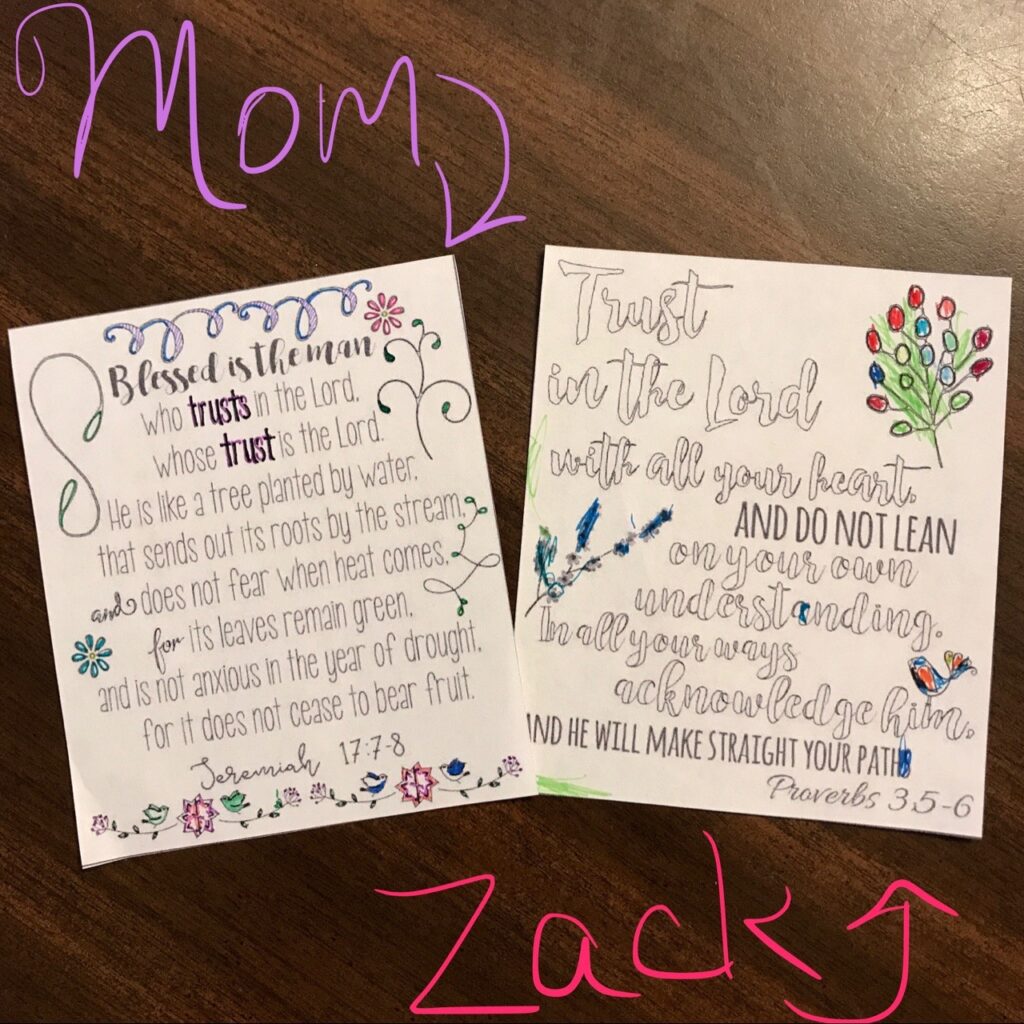 Mom
Blessed is the man
who trusts in the Lord,
whose trust is the Lord.
He is like a tree planted by water,
that sends out its roots by the stream,
and does not fear when heat comes,
for its leaves remain green,
and is not anxious in the year of drought,
for it does not cease to bear fruit.
Jeremiah 17:7-8
Trust
in the Lord
with all your heart,
AND DO NOT LEAN
on your own
understanding.
In all your ways
acknowledge him,
AND HE WILL MAKE STRAIGHT YOUR PATHS
Proverbs 3:5-6
Zack